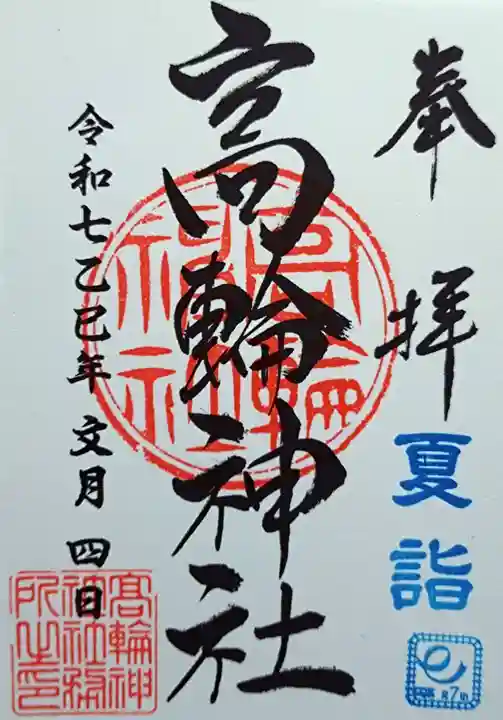 奉拝
夏詣
高輪神社
高輪神社
令和七乙巳年 文月 四日
高輪神社務所之印